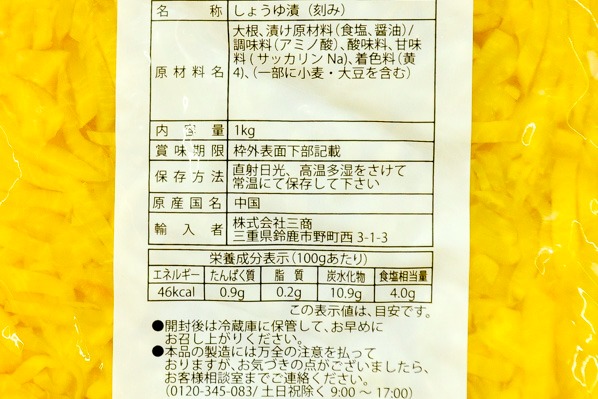 名称 しょうゆ漬（刻み）
原材料名 大根、漬け原材料（食塩、醤油）/
調味料（アミノ酸）、酸味料、甘味
料（サッカリンNa)、着色料（黄
4)、（一部に小麦・大豆を含む）
内容量 1kg
賞味期限 枠外表面下部記載
保存方法 直射日光、高温多湿をさけて
常温にて保存して下さい
原産国名 中国
輸入者 株式会社三商
三重県鈴鹿市野町西3-1-3
栄養成分表示（100gあたり）
エネルギー たんぱく質 脂質 炭水化物 食塩相当量
46kcal 0.9g 0.2g 10.9g 4.0g
この表示値は、目安です。
●開封後は冷蔵庫に保管して、お早めに
お召し上がりください。
●本品の製造には万全の注意を払って
おりますが、お気づきの点がございましたら、
お客様相談室までご連絡ください。
(0120-345-083/ 土日祝除く 9:00 ～ 17:00)